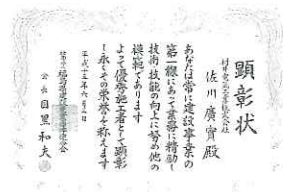 顕彰状
佐川廣實殿
あなたは常に建設事業の
第一線にあって業務に精励し
技術技能の向上に努め他の
模範であります
よって優秀施工者として顕彰
し永くその栄誉を称えます
平成十三年六月
会長 目黒和夫